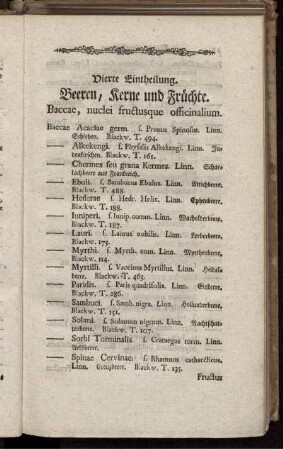 Vierte Eintheilung.
Beeren, Kerne und Früchte.
Baccae, nuclei fructusque officinalium.
Baccae Acaciae germ. ſ. Prunus Spinoſus. Linn.
Schlehen. Blackw. T. 494.
— Alkekengi. ſ. Phyſalis Alkekengi. Linn. Ju-
denkirſchen. Blackw. T. 161.
— Chermes ſeu grana Kermes. Linn. Schar-
lachbeere aus Frankreich.
— Ebuli. ſ. Sambucus Ebulus. Linn. Attichbeere.
Blackw. T. 488.
— Hederae ſ. Hedr. Helix. Linn. Epheubeere.
Blackw. T. 188.
— Iuniperi. ſ. Iunip. comm. Linn. Wacholderbeere.
Blackw. T. 187.
— Lauri. ſ. Laurus nobilis. Linn. Lorbeeren.
Blackw. 175.
— Myrthi. ſ. Myrth. com. Linn. Myrthenbeere.
Blackw. 114.
— Myrtilli. ſ. Vaccinia Myrtillus. Linn. Heidel-
beere. Blackw. T. 463.
— Paridis. ſ. Paris quadrifolia. Linn. Einbeere.
Blackw. T. 286.
— Sambuci. ſ. Samb. nigra. Linn. Hollunderbeere.
Blackw. T. 151.
— Solani. ſ. Solanum nigrum. Linn. Nachtſchat-
tenbeere. Blackw. T. 107.
— Sorbi Torminalis. ſ. Crataegus torm. Linn.
— Spinae Cervinae. ſ. Rhamnus catharcticus.
Linn. Creuzbeere. Blackw. T. 135.
Fructus